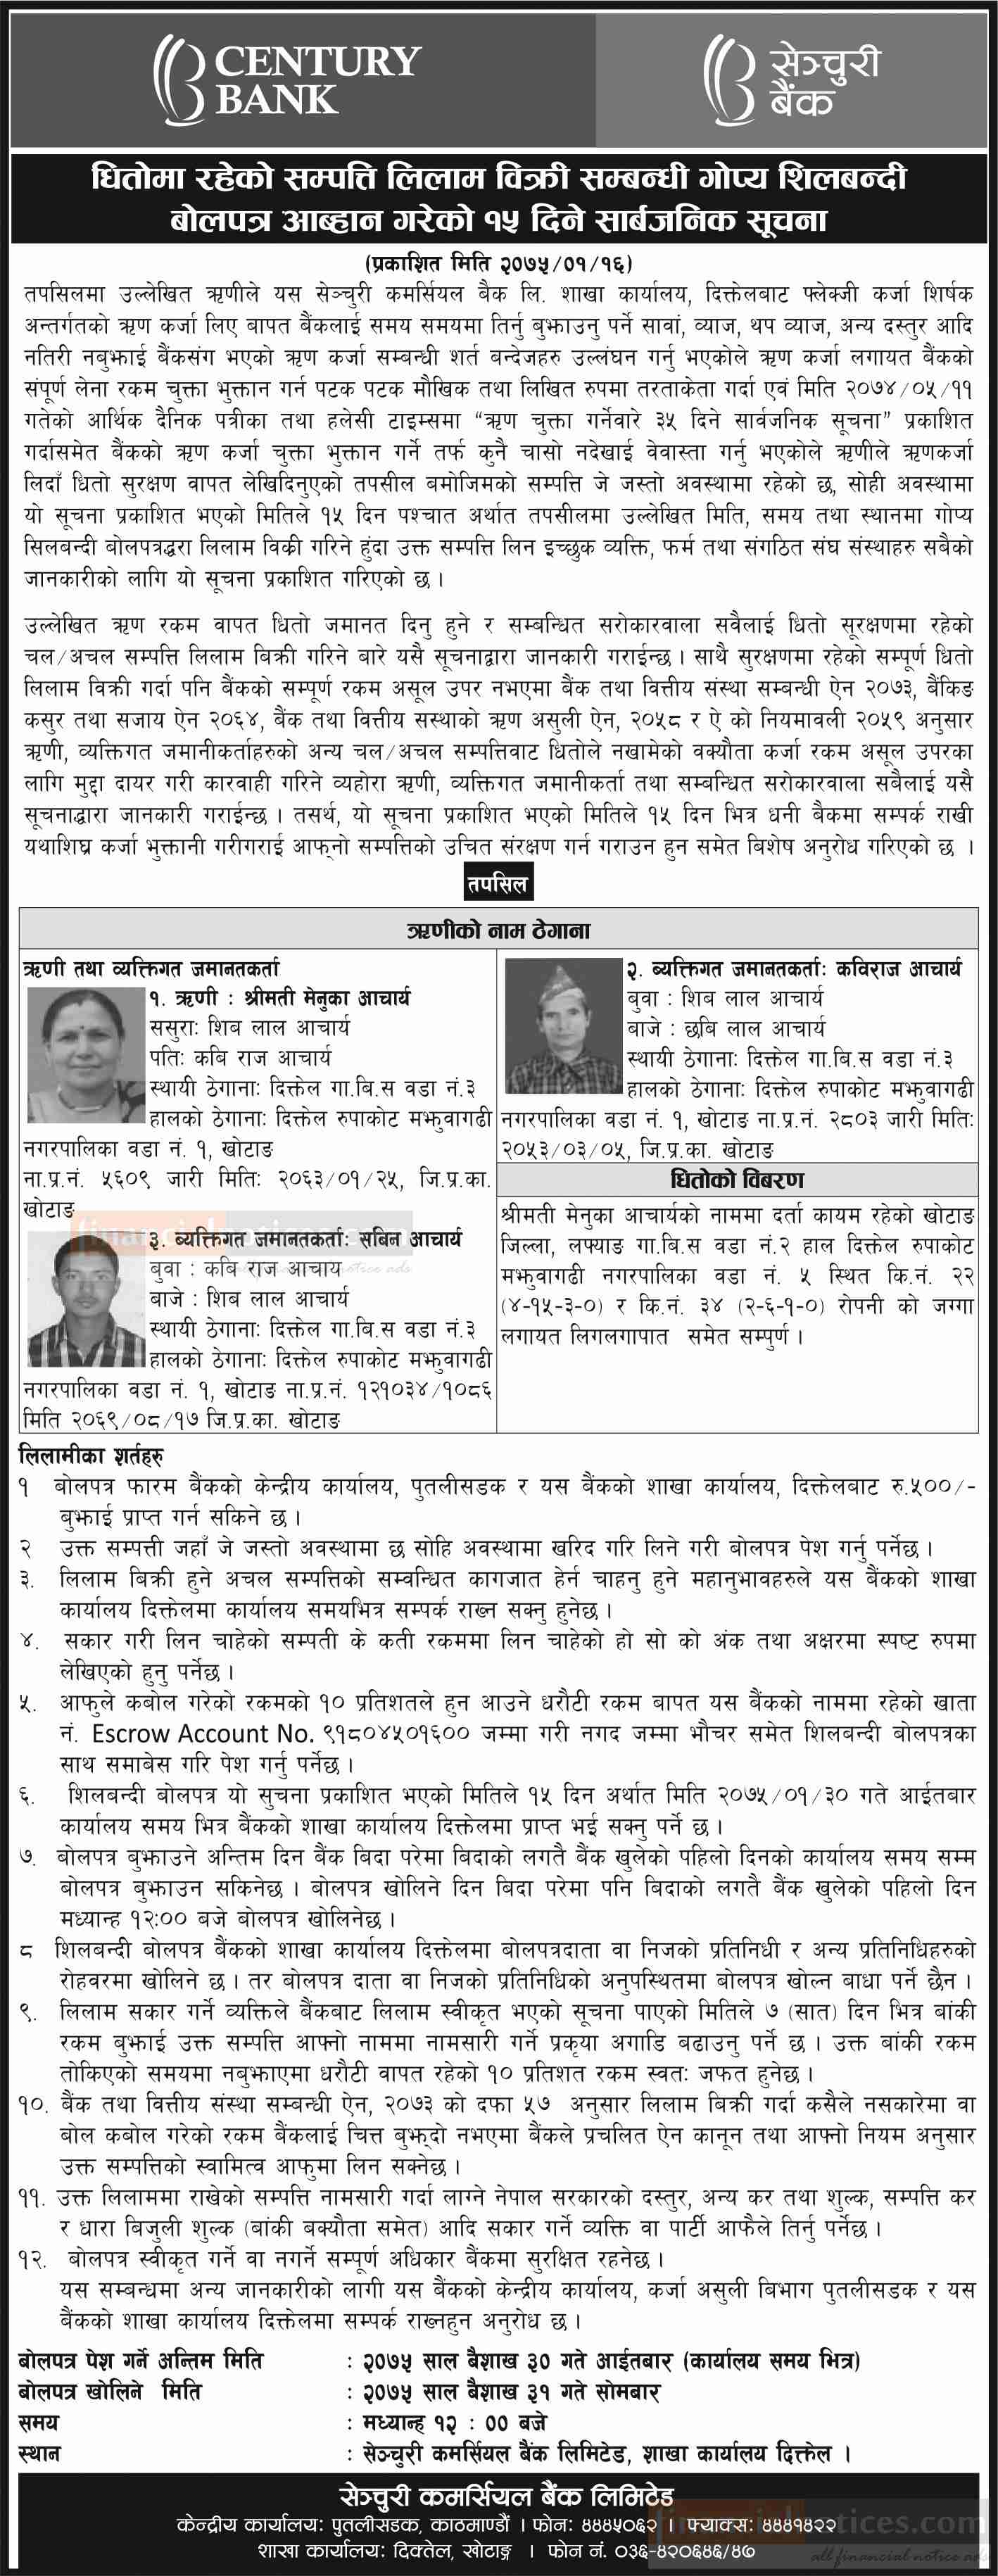 CENTURY
BANK
सेञ्चुरी
बैंक
धितोमा रहेको सम्पत्ति लिलाम विक्री सम्बन्धी गोप्य शिलबन्दी
बोलपत्र आब्हान गरेको १५ दिने सार्बजनिक सूचना
(प्रकाशित मिति २०७५/०१/१६)
तपसिलमा उल्लेखित ऋणीले यस सेञ्चुरी कमर्सियल बैक लि. शाखा कार्यालय, दिक्तेलबाट फ्लेक्जी कर्जा शिर्षक
अन्तर्गतको ऋण कर्जा लिए बापत बैंकलाई समय समयमा तिर्नु बुझाउनु पर्ने सावां, व्याज, थप व्याज, अन्य दस्तुर आदि
नतिरी नबुझाई बैंकसंग भएको ऋण कर्जा सम्बन्धी शर्त बन्देजहरु उल्लंघन गर्नु भएकोले ऋण कर्जा लगायत बैंकको
संपूर्ण लेना रकम चुक्ता भुक्तान गर्न पटक पटक मौखिक तथा लिखित रुपमा तरताकेता गर्दा एवं मिति २०७४/०५/११
गतेको आर्थिक दैनिक पत्रीका तथा हलेसी टाइम्समा “ऋण चुक्ता गर्नेवारे ३५ दिने सार्वजनिक सूचना” प्रकाशित
गर्दासमेत बैंकको ऋण कर्जा चुक्ता भुक्तान गर्ने तर्फ कुनै चासो नदेखाई वेवास्ता गर्नु भएकोले ऋणीले ऋणकर्जा
लिदाँ धितो सुरक्षण वापत लेखिदिनुएको तपसील बमोजिमको सम्पत्ति जे जस्तो अवस्थामा रहेको छ, सोही अवस्थामा
यो सूचना प्रकाशित भएको मितिले १५ दिन पश्चात अर्थात तपसीलमा उल्लेखित मिति, समय तथा स्थानमा गोप्य
सिलबन्दी बोलपत्रद्धरा लिलाम विकी गरिने हुंदा उक्त सम्पत्ति लिन इच्छुक व्यक्ति, फर्म तथा संगठित संघ संस्थाहरु सबैको
जानकारीको लागि यो सूचना प्रकाशित गरिएको छ ।
उल्लेखित ऋण रकम वापत धितो जमानत दिनु हुने र सम्बन्धित सरोकारवाला सवैलाई धितो सूरक्षणमा रहेको
चल/अचल सम्पत्ति लिलाम बिक्री गरिने बारे यसै सूचनाद्वारा जानकारी गराईन्छ । साथै सुरक्षणमा रहेको सम्पूर्ण धितो
लिलाम विक्री गर्दा पनि बैंकको सम्पूर्ण रकम असूल उपर नभएमा बैंक तथा वित्तीय संस्था सम्बन्धी ऐन २०७३, बैंकिङ
कसुर तथा सजाय ऐन २०६४, बैंक तथा वित्तीय सस्थाको ऋण असुली ऐन, २०५८ र ऐ को नियमावली २०५९ अनुसार
ऋणी, व्यक्तिगत जमानीकर्ताहरुको अन्य चल/अचल सम्पत्तिवाट धितोले नखामेको वक्यौता कर्जा रकम असूल उपरका
लागि मुद्दा दायर गरी कारवाही गरिने व्यहोरा ऋणी, व्यक्तिगत जमानीकर्ता तथा सम्बन्धित सरोकारवाला सबैलाई यसै
सूचनाद्धारा जानकारी गराईन्छ । तसर्थ, यो सूचना प्रकाशित भएको मितिले १५ दिन भित्र धनी बैकमा सम्पर्क राखी
यथाशिघ्र कर्जा भुक्तानी गरीगराई आफ्नो सम्पत्तिको उचित संरक्षण गर्न गराउन हुन समेत बिशेष अनुरोध गरिएको छ ।
तपसिल
ऋणीको नाम ठेगाना
ऋणी तथा व्यक्तिगत जमानतकर्ता
१. ऋणी : श्रीमती मेनुका आचार्य
ससुराः शिब लाल आचार्य
पतिः कबि राज आचार्य
स्थायी ठेगानाः दिक्तेल गा.बि.स वडा नं.३
हालको ठेगानाः दिक्तेल रुपाकोट मझुवागढी
नगरपालिका वडा नं. १, खोटाङ
ना.प्र.नं. ५६०९ जारी मितिः २०६३/०१/२५, जि.प्र.का.
खोटाङ
३. ब्यक्तिगत जमानतकर्ताः सबिन आचार्य
बुवा : कबि राज आचार्य
बाजे : शिब लाल आचार्य
स्थायी ठेगानाः दिक्तेल गा.बि.स वडा नं.३
हालको ठेगानाः दिक्तेल रुपाकोट मझुवागढी
नगरपालिका वडा नं. १, खोटाङ ना.प्र.नं. १२१०३४/१०८६
मिति २०६९/०८/१७ जि.प्र.का. खोटाङ
२. ब्यक्तिगत जमानतकर्ताः कविराज आचार्य
बुवा : शिब लाल आचार्य
बाजे : छबि लाल आचार्य
स्थायी ठेगानाः दिक्तेल गा.बि.स वडा नं.३
हालको ठेगानाः दिक्तेल रुपाकोट मझुवागढी
नगरपालिका वडा नं. १, खोटाङ ना.प्र.नं. २८०३ जारी मितिः
२०५३/०३/०५, जि.प्र.का. खोटाङ
धितोको विबरण
श्रीमती मेनुका आचार्यको नाममा दर्ता कायम रहेको खोटाङ
जिल्ला, लफ्याङ गा.बि.स वडा नं.२ हाल दिक्तेल रुपाकोट
मझुवागढी नगरपालिका वडा नं. ५ स्थित कि.नं. २२
(४-१५-३-०) र कि.नं. ३४ (२-६-१-०) रोपनी को जग्गा
लगायत लिगलगापात समेत सम्पुर्ण ।
financialnotices.com
all financial notice ads
लिलामीका शर्तहरु
१ बोलपत्र फारम बैंकको केन्द्रीय कार्यालय, पुतलीसडक र यस बैंकको शाखा कार्यालय, दिक्तेलबाट रु.५००/-
बुझाई प्राप्त गर्न सकिने छ ।
२ उक्त सम्पत्ती जहाँ जे जस्तो अवस्थामा छ सोहि अवस्थामा खरिद गरि लिने गरी बोलपत्र पेश गर्नु पर्नेछ ।
३. लिलाम बिक्री हुने अचल सम्पत्तिको सम्वन्धित कागजात हेर्न चाहनु हुने महानुभावहरुले यस बैंकको शाखा
कार्यालय दिक्तेलमा कार्यालय समयभित्र सम्पर्क राख्न सक्नु हुनेछ ।
४. सकार गरी लिन चाहेको सम्पती के कती रकममा लिन चाहेको हो सो को अंक तथा अक्षरमा स्पष्ट रुपमा
लेखिएको हुनु पर्नेछ ।
५. आफुले कबोल गरेको रकमको १० प्रतिशतले हुन आउने धरौटी रकम बापत यस बैंकको नाममा रहेको खाता
नं. Escrow Account No. ९१८०४५०१६०० जम्मा गरी नगद जम्मा भौचर समेत शिलबन्दी बोलपत्रका
साथ समाबेस गरि पेश गर्नु पर्नेछ ।
६. शिलबन्दी बोलपत्र यो सुचना प्रकाशित भएको मितिले १५ दिन अर्थात मिति २०७५/०१/३० गते आईतबार
कार्यालय समय भित्र बैंकको शाखा कार्यालय दिक्तेलमा प्राप्त भई सक्नु पर्ने छ ।
७. बोलपत्र बुझाउने अन्तिम दिन बैंक बिदा परेमा बिदाको लगतै बैंक खुलेको पहिलो दिनको कार्यालय समय सम्म
बोलपत्र बुझाउन सकिनेछ । बोलपत्र खोलिने दिन बिदा परेमा पनि बिदाको लगतै बैंक खुलेको पहिलो दिन
मध्यान्ह १२:०० बजे बोलपत्र खोलिनेछ ।
८ शिलबन्दी बोलपत्र बैंकको शाखा कार्यालय दिक्तेलमा बोलपत्रदाता वा निजको प्रतिनिधी र अन्य प्रतिनिधिहरुको
रोहवरमा खोलिने छ । तर बोलपत्र दाता वा निजको प्रतिनिधिको अनुपस्थितमा बोलपत्र खोल्न बाधा पर्ने छैन ।
९. लिलाम सकार गर्ने व्यक्तिले बैंकबाट लिलाम स्वीकृत भएको सूचना पाएको मितिले ७ (सात) दिन भित्र बांकी
रकम बुझाई उक्त सम्पत्ति आफ्नो नाममा नामसारी गर्ने प्रकृया अगाडि बढाउनु पर्ने छ । उक्त बांकी रकम
तोकिएको समयमा नबुझाएमा धरौटी वापत रहेको १० प्रतिशत रकम स्वतः जफत हुनेछ ।
१०. बैंक तथा वित्तीय संस्था सम्बन्धी ऐन, २०७३ को दफा ५७ अनुसार लिलाम बिक्री गर्दा कसैले नसकारेमा वा
बोल कबोल गरेको रकम बैंकलाई चित्त बुझ्दो नभएमा बैंकले प्रचलित ऐन कानून तथा आफ्नो नियम अनुसार
उक्त सम्पत्तिको स्वामित्व आफुमा लिन सक्नेछ ।
११. उक्त लिलाममा राखेको सम्पत्ति नामसारी गर्दा लाग्ने नेपाल सरकारको दस्तुर, अन्य कर तथा शुल्क, सम्पत्ति कर
र धारा बिजुली शुल्क (बांकी बक्यौता समेत) आदि सकार गर्ने व्यक्ति वा पार्टी आफैले तिर्नु पर्नेछ ।
१२. बोलपत्र स्वीकृत गर्ने वा नगर्ने सम्पूर्ण अधिकार बैंकमा सुरक्षित रहनेछ ।
यस सम्बन्धमा अन्य जानकारीको लागी यस बैंकको केन्द्रीय कार्यालय, कर्जा असुली बिभाग पुतलीसडक र यस
बैंकको शाखा कार्यालय दिक्तेलमा सम्पर्क राख्नहुन अनुरोध छ ।
बोलपत्र पेश गर्ने अन्तिम मिति : २०७५ साल बैशाख ३० गते आईतबार (कार्यालय समय भित्र)
बोलपत्र खोलिने मिति : २०७५ साल बैशाख ३१ गते सोमबार
समय : मध्यान्ह १२ : ०० बजे
स्थान : सेञ्चुरी कमर्सियल बैंक लिमिटेड, शाखा कार्यालय दिक्तेल ।
सेञ्चुरी कमर्सियल बैंक लिमिटेड
केन्द्रीय कार्यालयः पुतलीसडक, काठमाण्डौं । फोनः ४४४५०६२ । फ्याक्सः ४४४१४२२
शाखा कार्यालयः दिक्तेल, खोटाङ्ग । फोन नं. ०३६-४२०६४६/४७
financialnotices.com
all financial notice ads